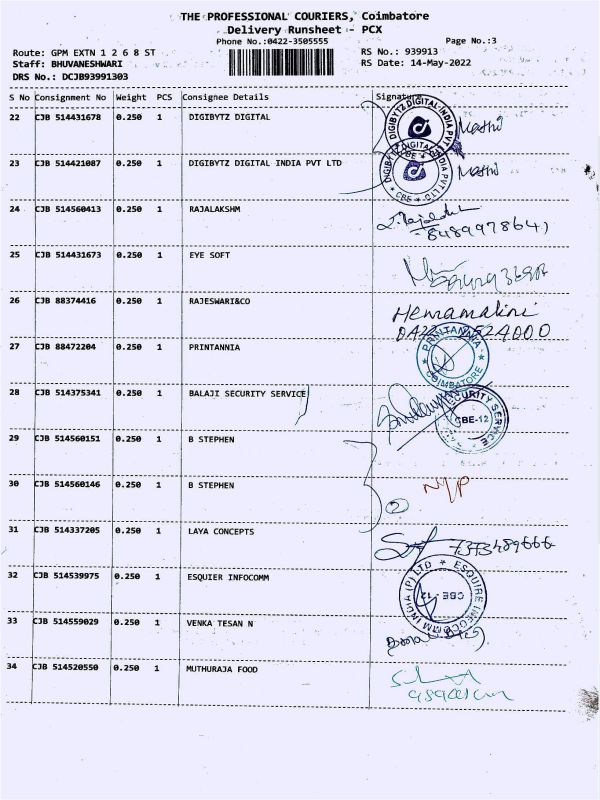 THE PROFESSIONAL COURIERS, Coimbatore
Delivery Runsheet - PCX
Phone No.:0422-3505555 Page No.:3
Route: GPM EXTN 1 2 6 8 ST RS No.: 939913
Staff: BHUVANESHWARI RS Date: 14-May-2022
DRS No.: DCJB93991303
S No Consignment No Weight PCS Consignee Details Signature
22 CJB 514431678 0.250 1 DIGIBYTZ DIGITAL
DIGIBYTZ DIGITAL INDIA PVT
23 CJB 514421087 0.250 1 DIGIBYTZ DIGITAL INDIA PVT LTD
DIGIBYTZ DIGITAL INDIA PVT LTD
* CBE *
24 CJB 514560413 0.250 1 RAJALAKSHM
8489978641
25 CJB 514431673 0.250 1 EYE SOFT
26 CJB 88374416 0.250 1 RAJESWARI&CO Hemamalini
27 CJB 88472204 0.250 1 PRINTANNIA
PRINTANNIA
COIMBATORE
28 CJB 514375341 0.250 1 BALAJI SECURITY SERVICE
SECURITY SERVICE
CBE-12
29 CJB 514560151 0.250 1 B STEPHEN
30 CJB 514560146 0.250 1 B STEPHEN N/P
2
31 CJB 514337205 0.250 1 LAYA CONCEPTS
7373489666
32 CJB 514539975 0.250 1 ESQUIER INFOCOMM
ESQUIRE INFOCOMM INDIA (P) LTD
CBE - 12
33 CJB 514559029 0.250 1 VENKA TESAN N
34 CJB 514520550 0.250 1 MUTHURAJA FOOD